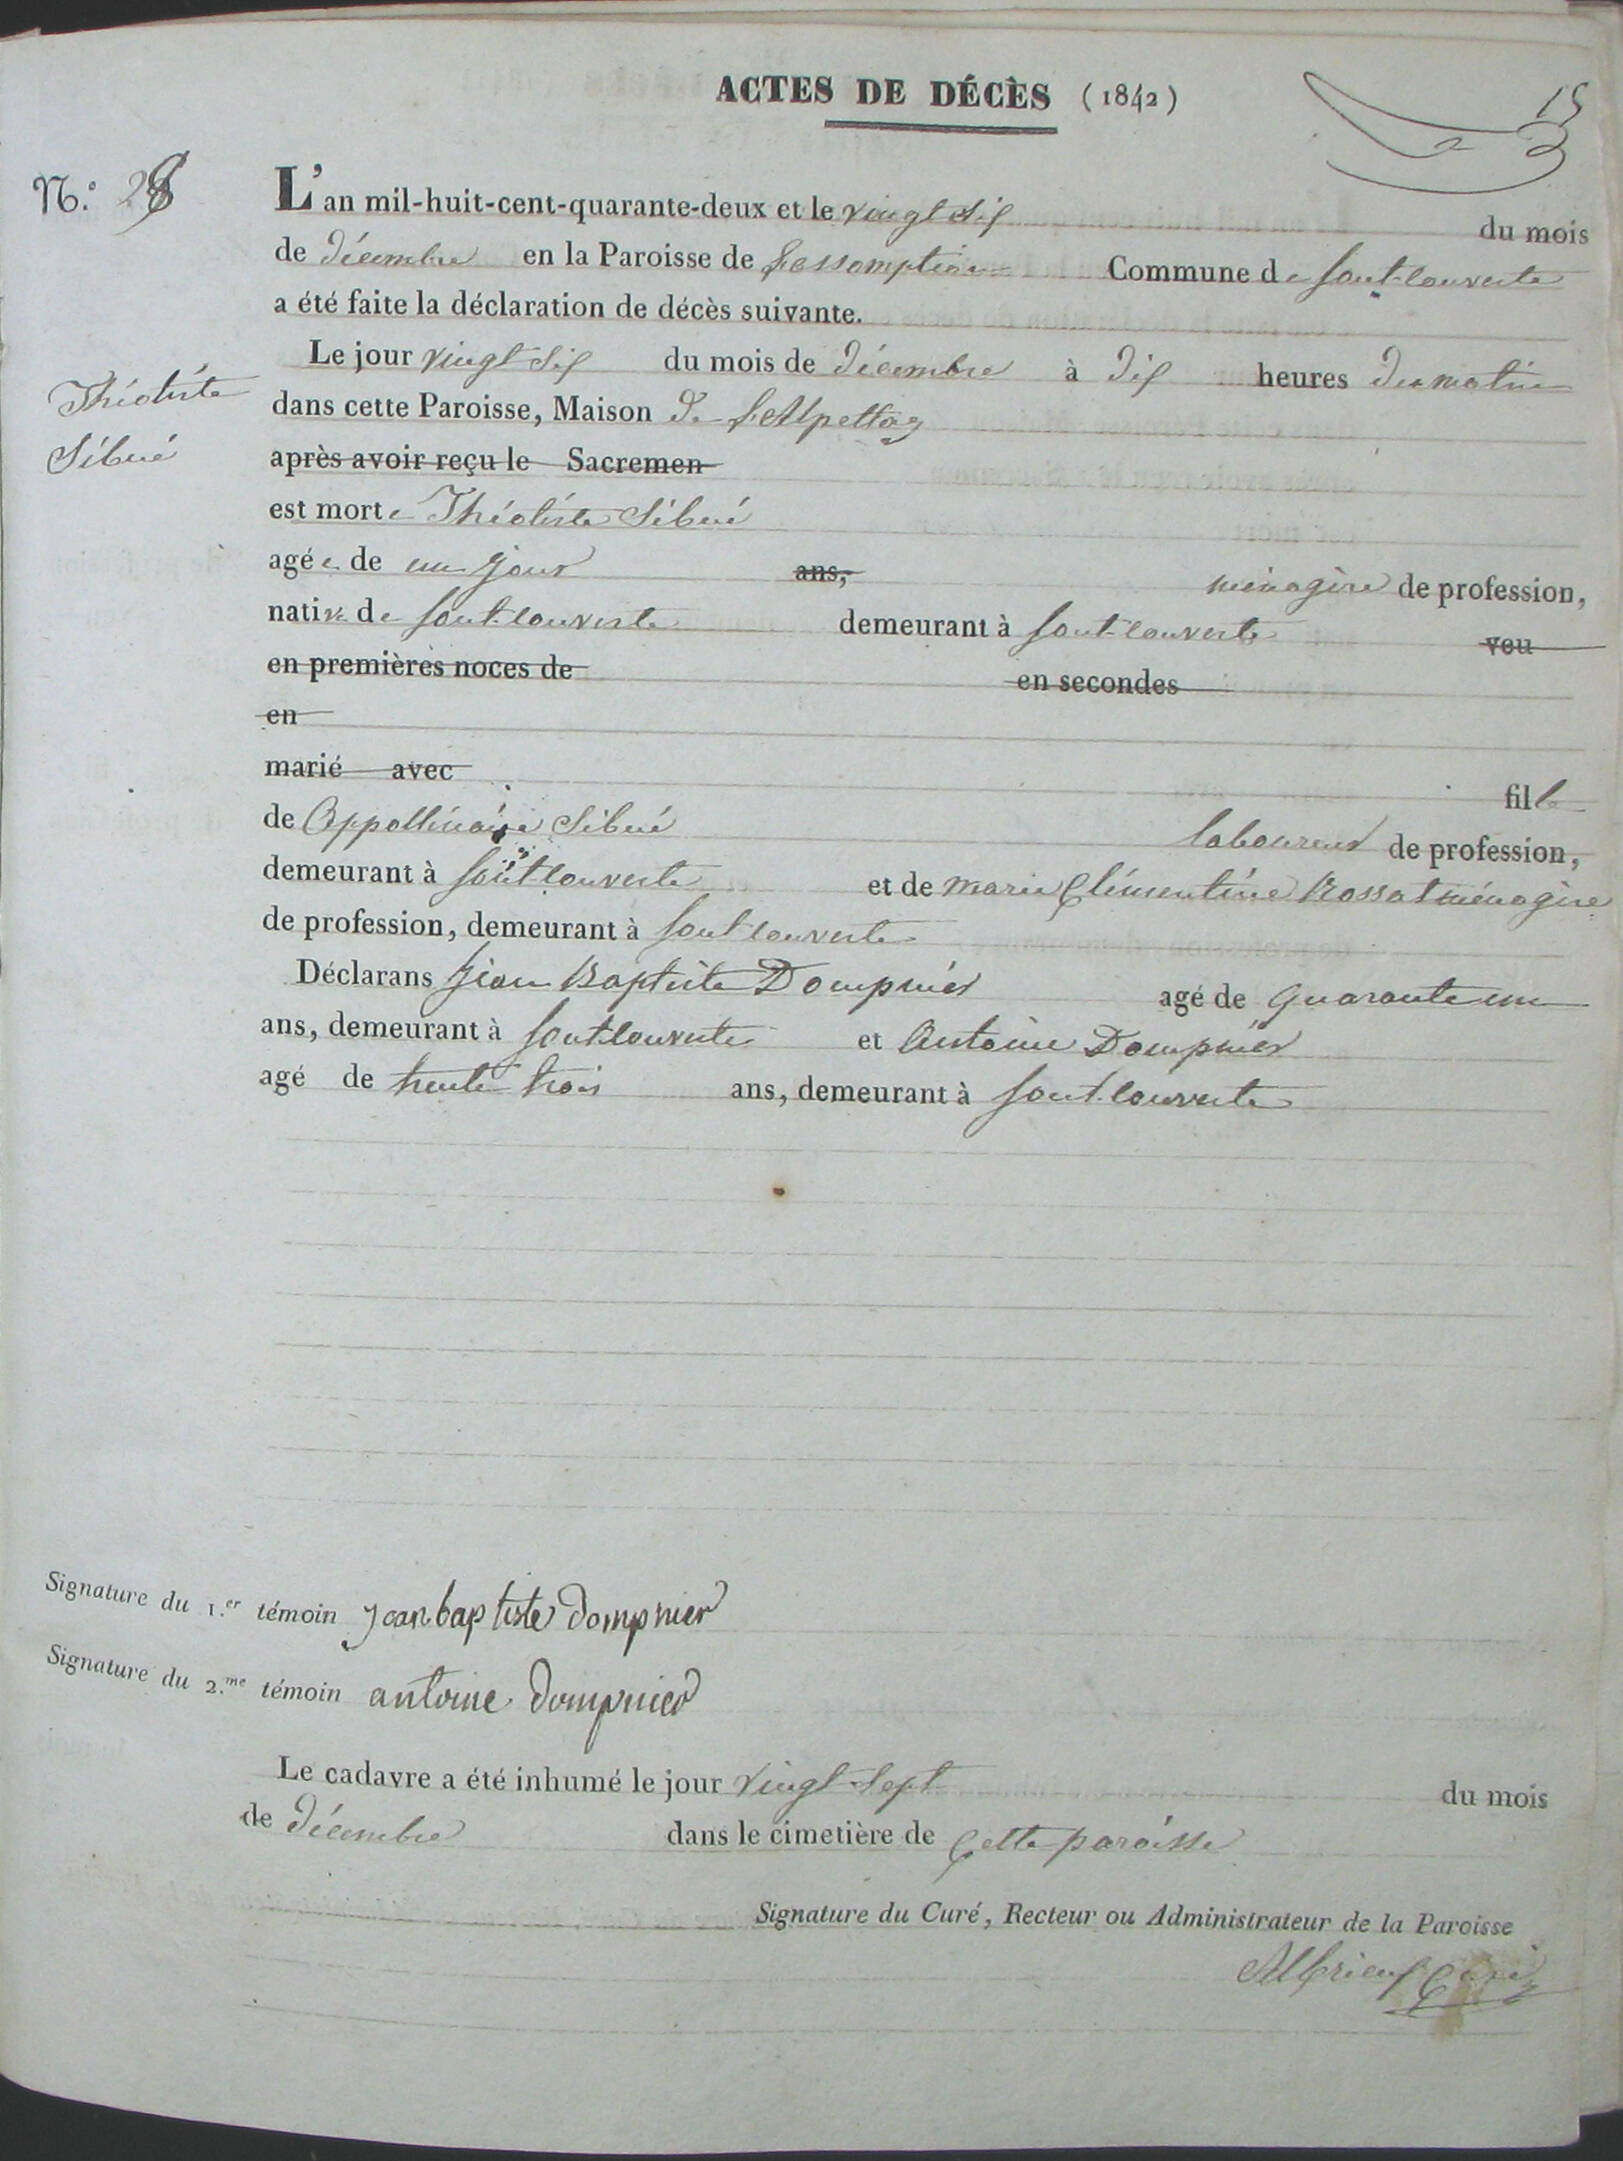 ACTES DE DÉCÈS (1842)
15
N.º 28
L'an mil-huit-cent-quarante-deux et le vingt six du mois
de décembre en la Paroisse de L'assomption Commune de font-couverte
a été faite la déclaration de décès suivante.
Le jour vingt six du mois de décembre à dix heures du matin
Théotiste
Sibué
dans cette Paroisse, Maison de L'Alpettaz
après avoir reçu le Sacremen
est morte Théotiste Sibué
agée de un jour ans, ménagère de profession,
native de font-couverte demeurant à font-couverte veu
en premières noces de en secondes
en
marié avec fille
de Appollinaire Sibué laboureur de profession,
demeurant à font couverte et de marie Clémentine Rossat ménagère
de profession, demeurant à font couverte
Déclarans Jean Baptiste Dompnier agé de quarante un
ans, demeurant à font-couverte et Antoine Dompnier
agé de trente trois ans, demeurant à font-couverte
Signature du 1.er témoin jean baptiste dompnier
Signature du 2.me témoin antoine dompnier
Le cadavre a été inhumé le jour vingt-sept du mois
de décembre dans le cimetière de Cette paroisse
Signature du Curé, Recteur ou Administrateur de la Paroisse
Albrieux Curé